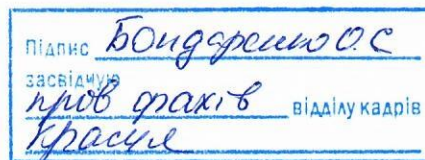 Підпис Бондаренко О.С
засвідчую
пров фахів відділу кадрів
Красуля